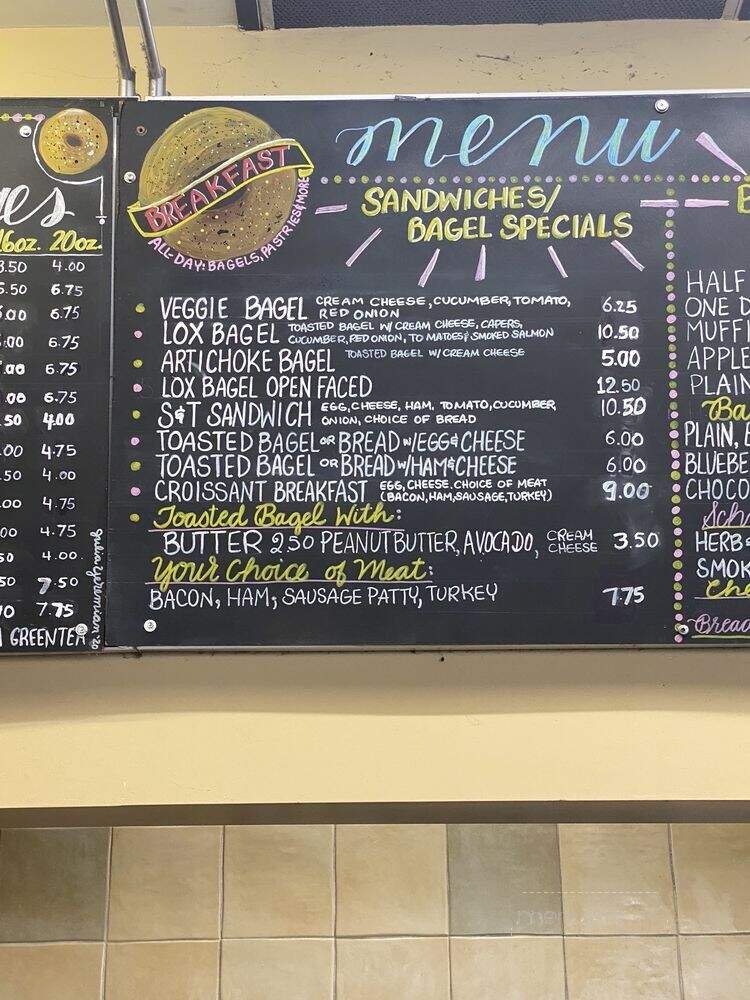 menu
BREAKFAST
ALL-DAY: BAGELS, PASTRIES & MORE
SANDWICHES/
BAGEL SPECIALS
VEGGIE BAGEL CREAM CHEESE, CUCUMBER, TOMATO, RED ONION 6.25
LOX BAGEL TOASTED BAGEL W/ CREAM CHEESE, CAPERS, CUCUMBER, RED ONION, TOMATOES & SMOKED SALMON 10.50
ARTICHOKE BAGEL TOASTED BAGEL W/ CREAM CHEESE 5.00
LOX BAGEL OPEN FACED 12.50
S&T SANDWICH EGG, CHEESE, HAM, TOMATO, CUCUMBER, ONION, CHOICE OF BREAD 10.50
TOASTED BAGEL OR BREAD W/EGG & CHEESE 6.00
TOASTED BAGEL OR BREAD W/HAM & CHEESE 6.00
CROISSANT BREAKFAST EGG, CHEESE, CHOICE OF MEAT (BACON, HAM, SAUSAGE, TURKEY) 9.00
Toasted Bagel With:
BUTTER 2.50 PEANUT BUTTER, AVOCADO, CREAM CHEESE 3.50
Your Choice of Meat:
BACON, HAM, SAUSAGE PATTY, TURKEY 7.75
16oz. 20oz.
3.50 4.00
6.75
6.75
6.75
6.75
4.00
4.75
4.00
4.75
4.75
4.00
7.50
7.75
GREEN TEA
HALF
ONE D
MUFF
APPLE
PLAIN
Ba
PLAIN, B
BLUEBE
CHOCO
Sch
HERB &
SMOK
Che
Bread